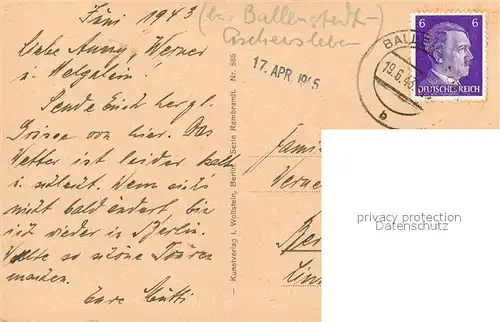 Juni 1943
(bei Ballenstedt-
Aschersleben
Liebe Anny, Werner
u. Helgalein!
Sende Euch herzl.
Grüsse von hier. Das
Wetter ist leider kalt
u. schlecht. Wenn sich's
nicht bald ändert bin
ich wieder in Berlin.
Wollte so schöne Touren
machen.
Eure Mutti
17. APR. 1945
Kunstverlag J. Wollstein, Berlin. Serie Rembrandt. Nr. 985
BALLE
19.6.43
b
6 6
DEUTSCHES REICH
Famil
Werne
Ber
privacy protection
Datenschutz